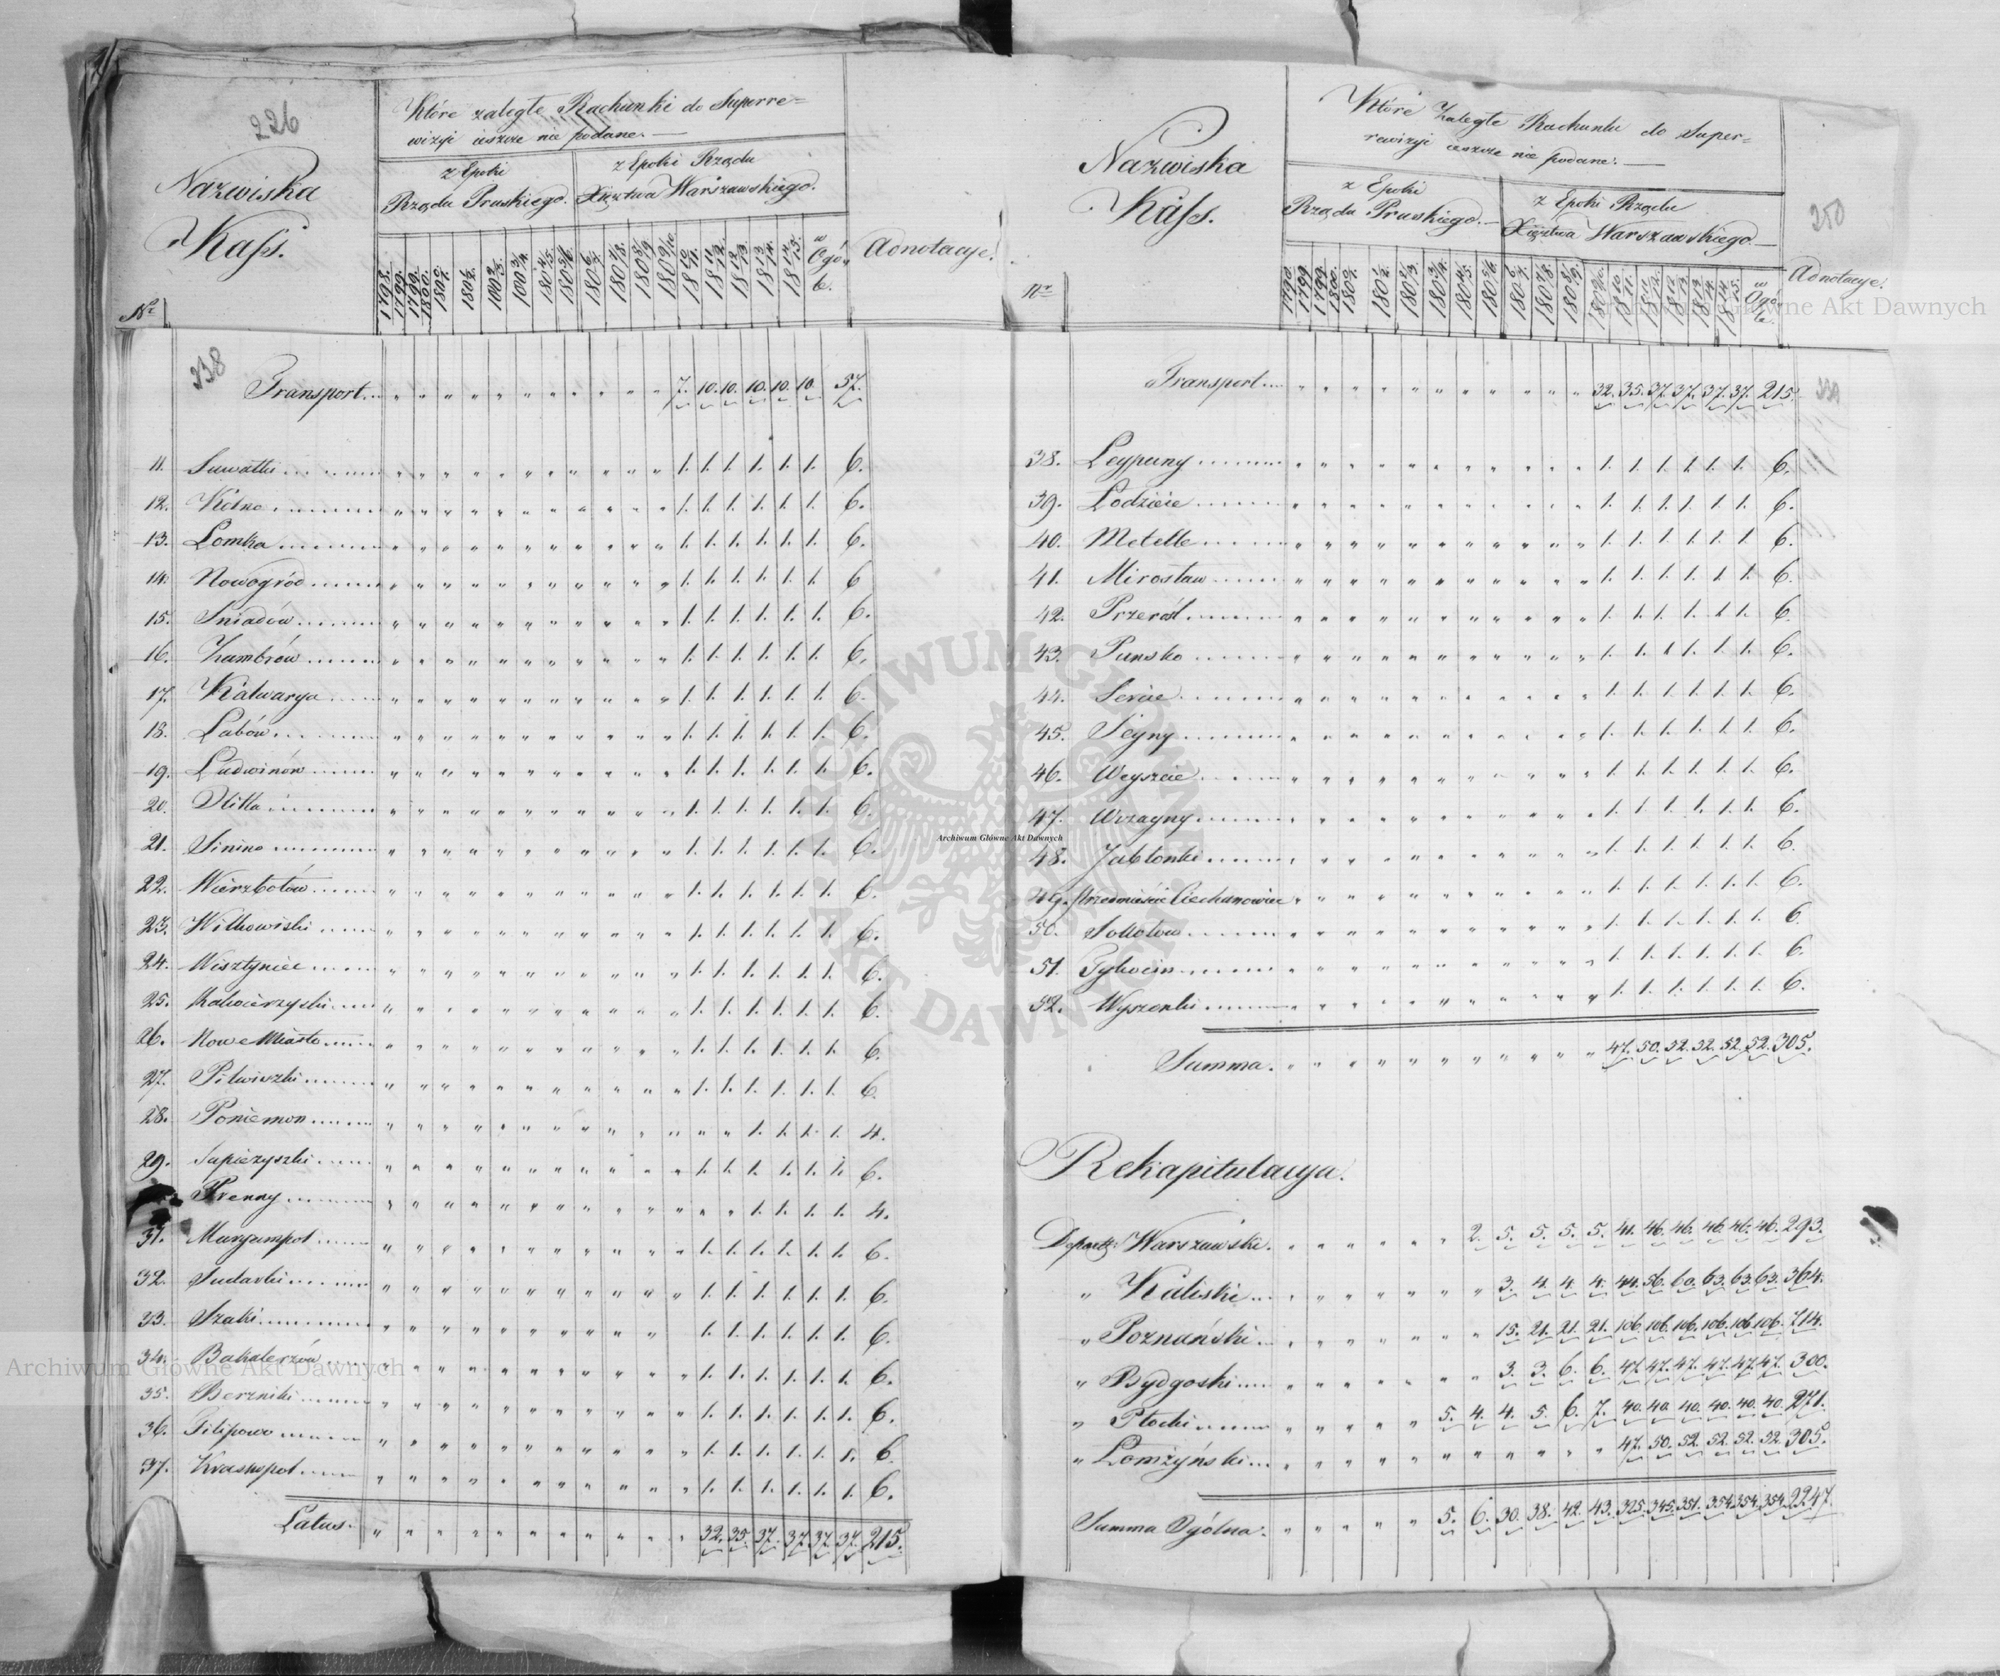 226
Nazwiska
Kass.
Nr
Które zaległe Rachunki do Superre=
wizyi ieszcze nie podane.
z Epoki
Rządu Pruskiego.
z Epoki Rządu
Xięztwa Warszawskiego.
w
Ogó
le.
Adnotacye.
338
Transport... " " " " " " " " " " " 7. 10. 10. 10. 10. 10. 57.
11. Suwałki 1. 1. 1. 1. 1. 1. 6.
12. Kolno 1. 1. 1. 1. 1. 1. 6.
13. Lomża 1. 1. 1. 1. 1. 1. 6.
14. Nowogród 1. 1. 1. 1. 1. 1. 6
15. Sniadów 1. 1. 1. 1. 1. 1. 6.
16. Zambrów 1. 1. 1. 1. 1. 1. 6.
17. Kalwarya 1. 1. 1. 1. 1. 1. 6.
18. Labów 1. 1. 1. 1. 1. 1. 6.
19. Ludwinów 1. 1. 1. 1. 1. 1. 6.
20. Olitta 1. 1. 1. 1. 1. 1. 6.
21. Sinino 1. 1. 1. 1. 1. 1. 6.
22. Wierzbołów 1. 1. 1. 1. 1. 1. 6.
23. Wilkowiski 1. 1. 1. 1. 1. 1. 6.
24. Wisztyniec 1. 1. 1. 1. 1. 1. 6.
25. 1. 1. 1. 1. 1. 1. 6.
26. Nowe Miasto 1. 1. 1. 1. 1. 1. 6.
27. Pilwiszki 1. 1. 1. 1. 1. 1. 6
28. Poniemon " " 1. 1. 1. 1. 4.
29. Sapieżyszki 1. 1. 1. 1. 1. 1. 6.
Prenny " " 1. 1. 1. 1. 4.
31. Maryampol 1. 1. 1. 1. 1. 1. 6.
32. Sudarki 1. 1. 1. 1. 1. 1. 6.
33. Szaki 1. 1. 1. 1. 1. 1. 6.
34. Bakalerzów 1. 1. 1. 1. 1. 1. 6.
35. Berzniki 1. 1. 1. 1. 1. 1. 6.
36. Filipowo 1. 1. 1. 1. 1. 1. 6.
37. Krasnopol 1. 1. 1. 1. 1. 1. 6.
Latus. 32. 35. 37. 37. 37. 37. 215.
Nazwiska
Kass.
Nr
Które Zaległe Rachunki do Super=
rewizyi ieszcze nie podane.
z Epoki
Rządu Pruskiego.
z Epoki Rządu
Xięztwa Warszawskiego
w
Ogó
le.
Adnotacye.
250
Transport 32. 35. 37. 37. 37. 37. 215.
38. Leypuny 1. 1. 1. 1. 1. 1. 6.
39. Lodzieie 1. 1. 1. 1. 1. 1. 6.
40. Metelle 1. 1. 1. 1. 1. 1. 6.
41. Mirosław 1. 1. 1. 1. 1. 1. 6.
42. Przerośl 1. 1. 1. 1. 1. 1. 6.
43. Punsko 1. 1. 1. 1. 1. 1. 6.
44. Sereie 1. 1. 1. 1. 1. 1. 6.
45. Seyny 1. 1. 1. 1. 1. 1. 6.
46. Weyszeie 1. 1. 1. 1. 1. 1. 6.
47. Wizayny 1. 1. 1. 1. 1. 1. 6.
48. Jabłonki 1. 1. 1. 1. 1. 1. 6.
49. Przedmieście Ciechanowiec 1. 1. 1. 1. 1. 1. 6.
50. Sokołów 1. 1. 1. 1. 1. 1. 6.
51. Tykocin 1. 1. 1. 1. 1. 1. 6.
52. Wyszonki 1. 1. 1. 1. 1. 1. 6.
Summa. 47. 50. 52. 52. 52. 52. 305.
Rekapitulacya.
Departt: Warszawski. 2. 5. 5. 5. 5. 41. 46. 46. 46. 46. 46. 293.
" Kaliski 3. 4. 4. 4. 44. 56. 60. 63. 63. 63. 364.
" Poznański 15. 21. 21. 21. 106. 106. 106. 106. 106. 106. 714.
" Bydgoski 3. 3. 6. 6. 47. 47. 47. 47. 47. 47. 300.
" Płocki 5. 4. 4. 5. 6. 7. 40. 40. 40. 40. 40. 40. 271.
" Lomżyński 47. 50. 52. 52. 52. 52. 305.
Summa Ogólna. 5. 6. 30. 38. 42. 43. 325. 345. 351. 354. 354. 354. 2247.
Archiwum Główne Akt Dawnych
Archiwum Główne Akt Dawnych
Archiwum Główne Akt Dawnych
ARCHIWUM GŁÓWNE AKT DAWNYCH